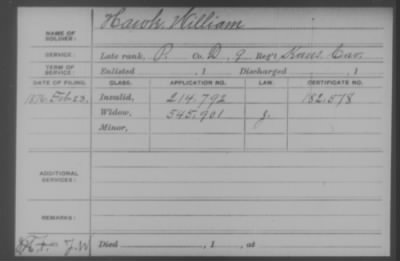 NAME OF SOLDIER: Hawk, William
SERVICE: Late rank, P. Co. D, 9 Reg't Kans. Cav.
TERM OF SERVICE: Enlisted , 1 Discharged , 1
DATE OF FILING. CLASS. APPLICATION NO. LAW. CERTIFICATE NO.
1876 Feb 23, Invalid, 214.792 182.578
Widow, 545.901 J.
Minor,
ADDITIONAL SERVICES:
REMARKS:
Died , 1 , at